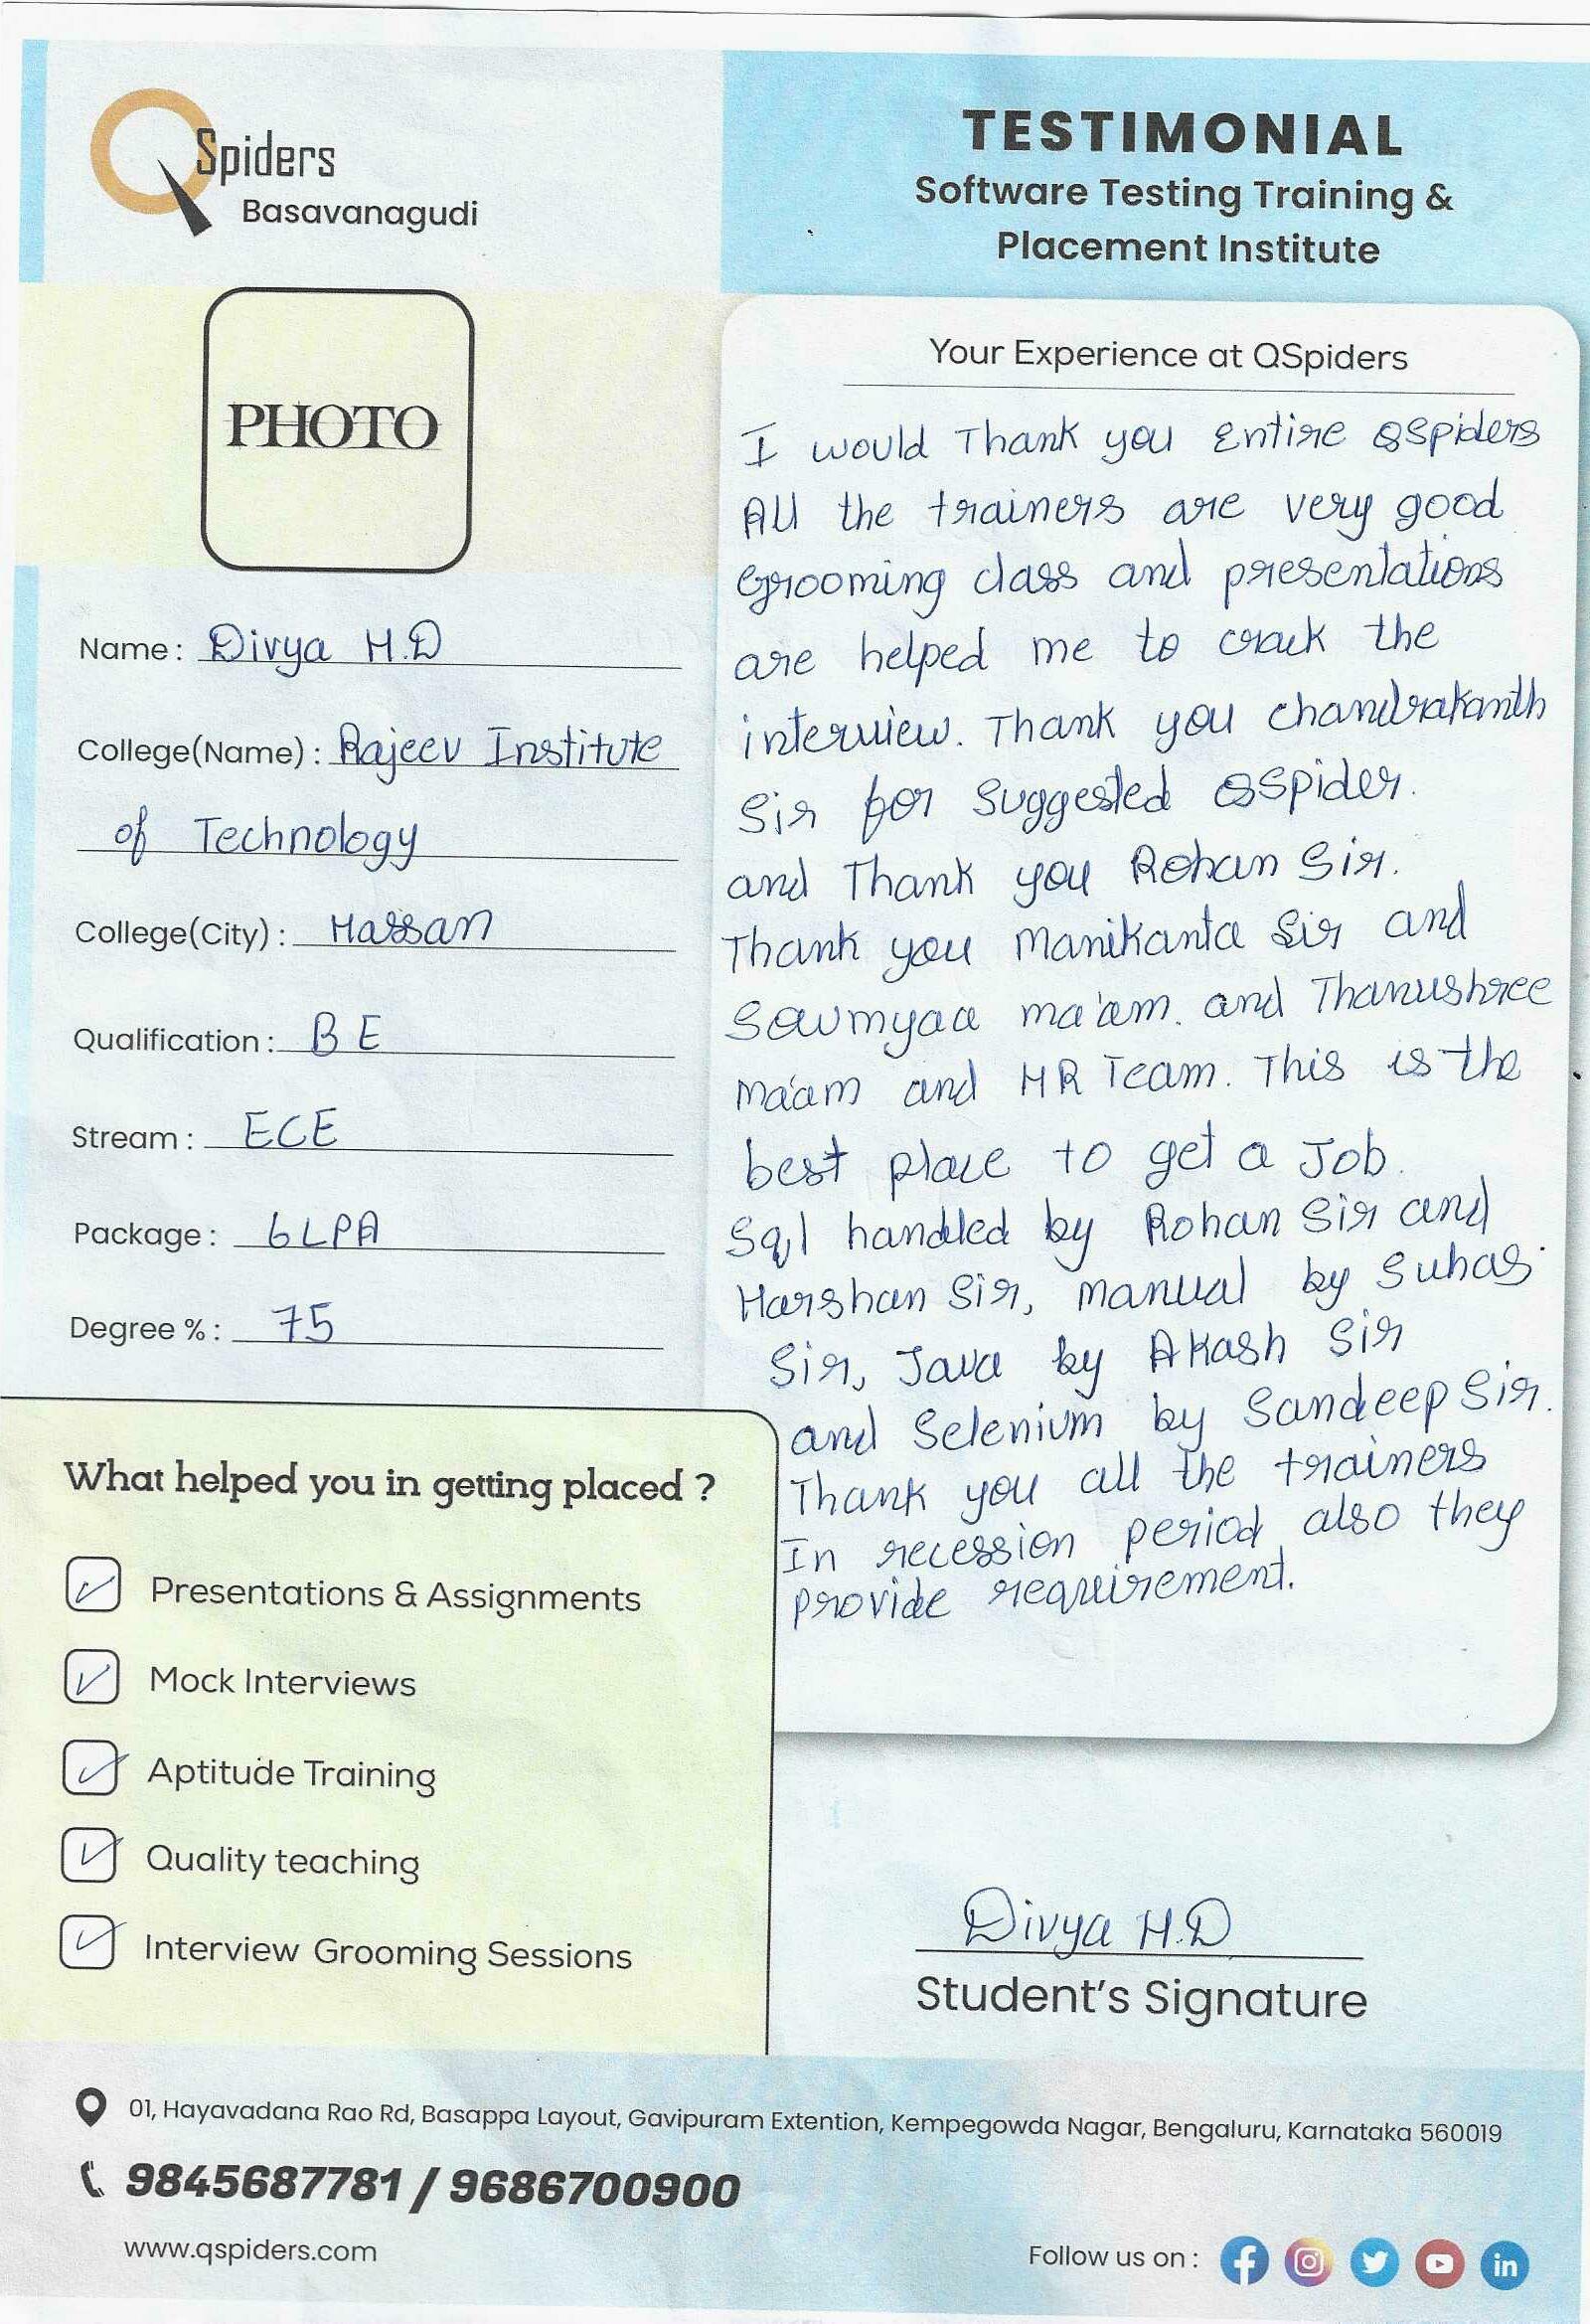 QSpiders
Basavanagudi
TESTIMONIAL
Software Testing Training &
Placement Institute
PHOTO
Name : Divya H.D
College(Name) : Rajeev Institute
of Technology
College(City) : Hassan
Qualification : B E
Stream : ECE
Package : 6LPA
Degree % : 75
Your Experience at QSpiders
I would Thank you Entire QSpiders
All the trainers are very good
Grooming class and presentations
are helped me to crack the
interview. Thank you chandrakanth
Sir for Suggested QSpider.
and Thank you Rohan Sir.
Thank you Manikanta Sir and
Sowmyaa ma'am. and Thanushree
ma'am and HR Team. This is the
best place to get a Job.
Sql handled by Rohan Sir and
Harshan Sir, manual by Suhas
Sir, Java by Akash Sir
and Selenium by Sandeep Sir.
Thank you all the trainers
In recession period also they
provide requirement.
What helped you in getting placed ?
Presentations & Assignments
Mock Interviews
Aptitude Training
Quality teaching
Interview Grooming Sessions
Divya H.D
Student's Signature
01, Hayavadana Rao Rd, Basappa Layout, Gavipuram Extention, Kempegowda Nagar, Bengaluru, Karnataka 560019
9845687781 / 9686700900
www.qspiders.com
Follow us on :